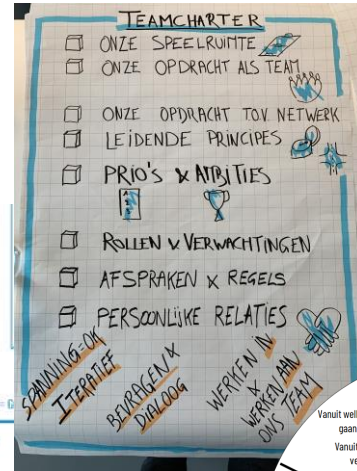 TEAMCHARTER
ONZE SPEELRUIMTE
ONZE OPDRACHT ALS TEAM
ONZE OPDRACHT T.O.V. NETWERK
LEIDENDE PRINCIPES
PRIO'S & AMBITIES
ROLLEN & VERWACHTINGEN
AFSPRAKEN & REGELS
PERSOONLIJKE RELATIES
SPANNING=OK
ITERATIEF
BEVRAGEN &
DIALOOG
WERKEN IN
&
WERKEN AAN
ONS TEAM
Vanuit
gaan
Vanuit